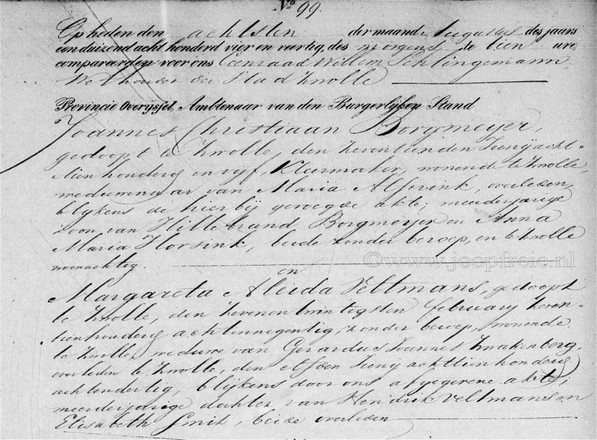 No 99.
Op heden den achtsten der maand Augustus des jaars
een duizend acht honderd vier en veertig, des morgens te tien ure
compareerden voor ons Coenraad Willem Schlingemann
Wethouder der Stad Zwolle
Provincie Overijssel Ambtenaar van den Burgerlijken Stand
Joannes Christiaan Borgmeijer,
gedoopt te Zwolle, den zeventienden Junij acht-
tien honderd en vijf, Kleermaker, wonende te Zwolle,
weduwnaar van Maria Alferink, overleden
blijkens de hier bij gevoegde akte; meerderjarige
zoon, van Hillebrand Borgmeijer en Anna
Maria Floorink, beide zonder beroep, en te Zwolle
woonachtig.
en
Margareta Aleida Veltmans, gedoopt
te Zwolle, den zevenentwintigsten february zeven-
tienhonderd achtennegentig, zonder beroep, wonende
te Zwolle, weduwe van Gerardus Joannes
overleden te Zwolle, den elfden Junij achttienhonderd
achtendertig, blijkens door ons afgegevene akte,
meerderjarige dochter van Hendrik Veltmans en
Elisabeth Smit, beide overleden
©www.joopfraje.nl